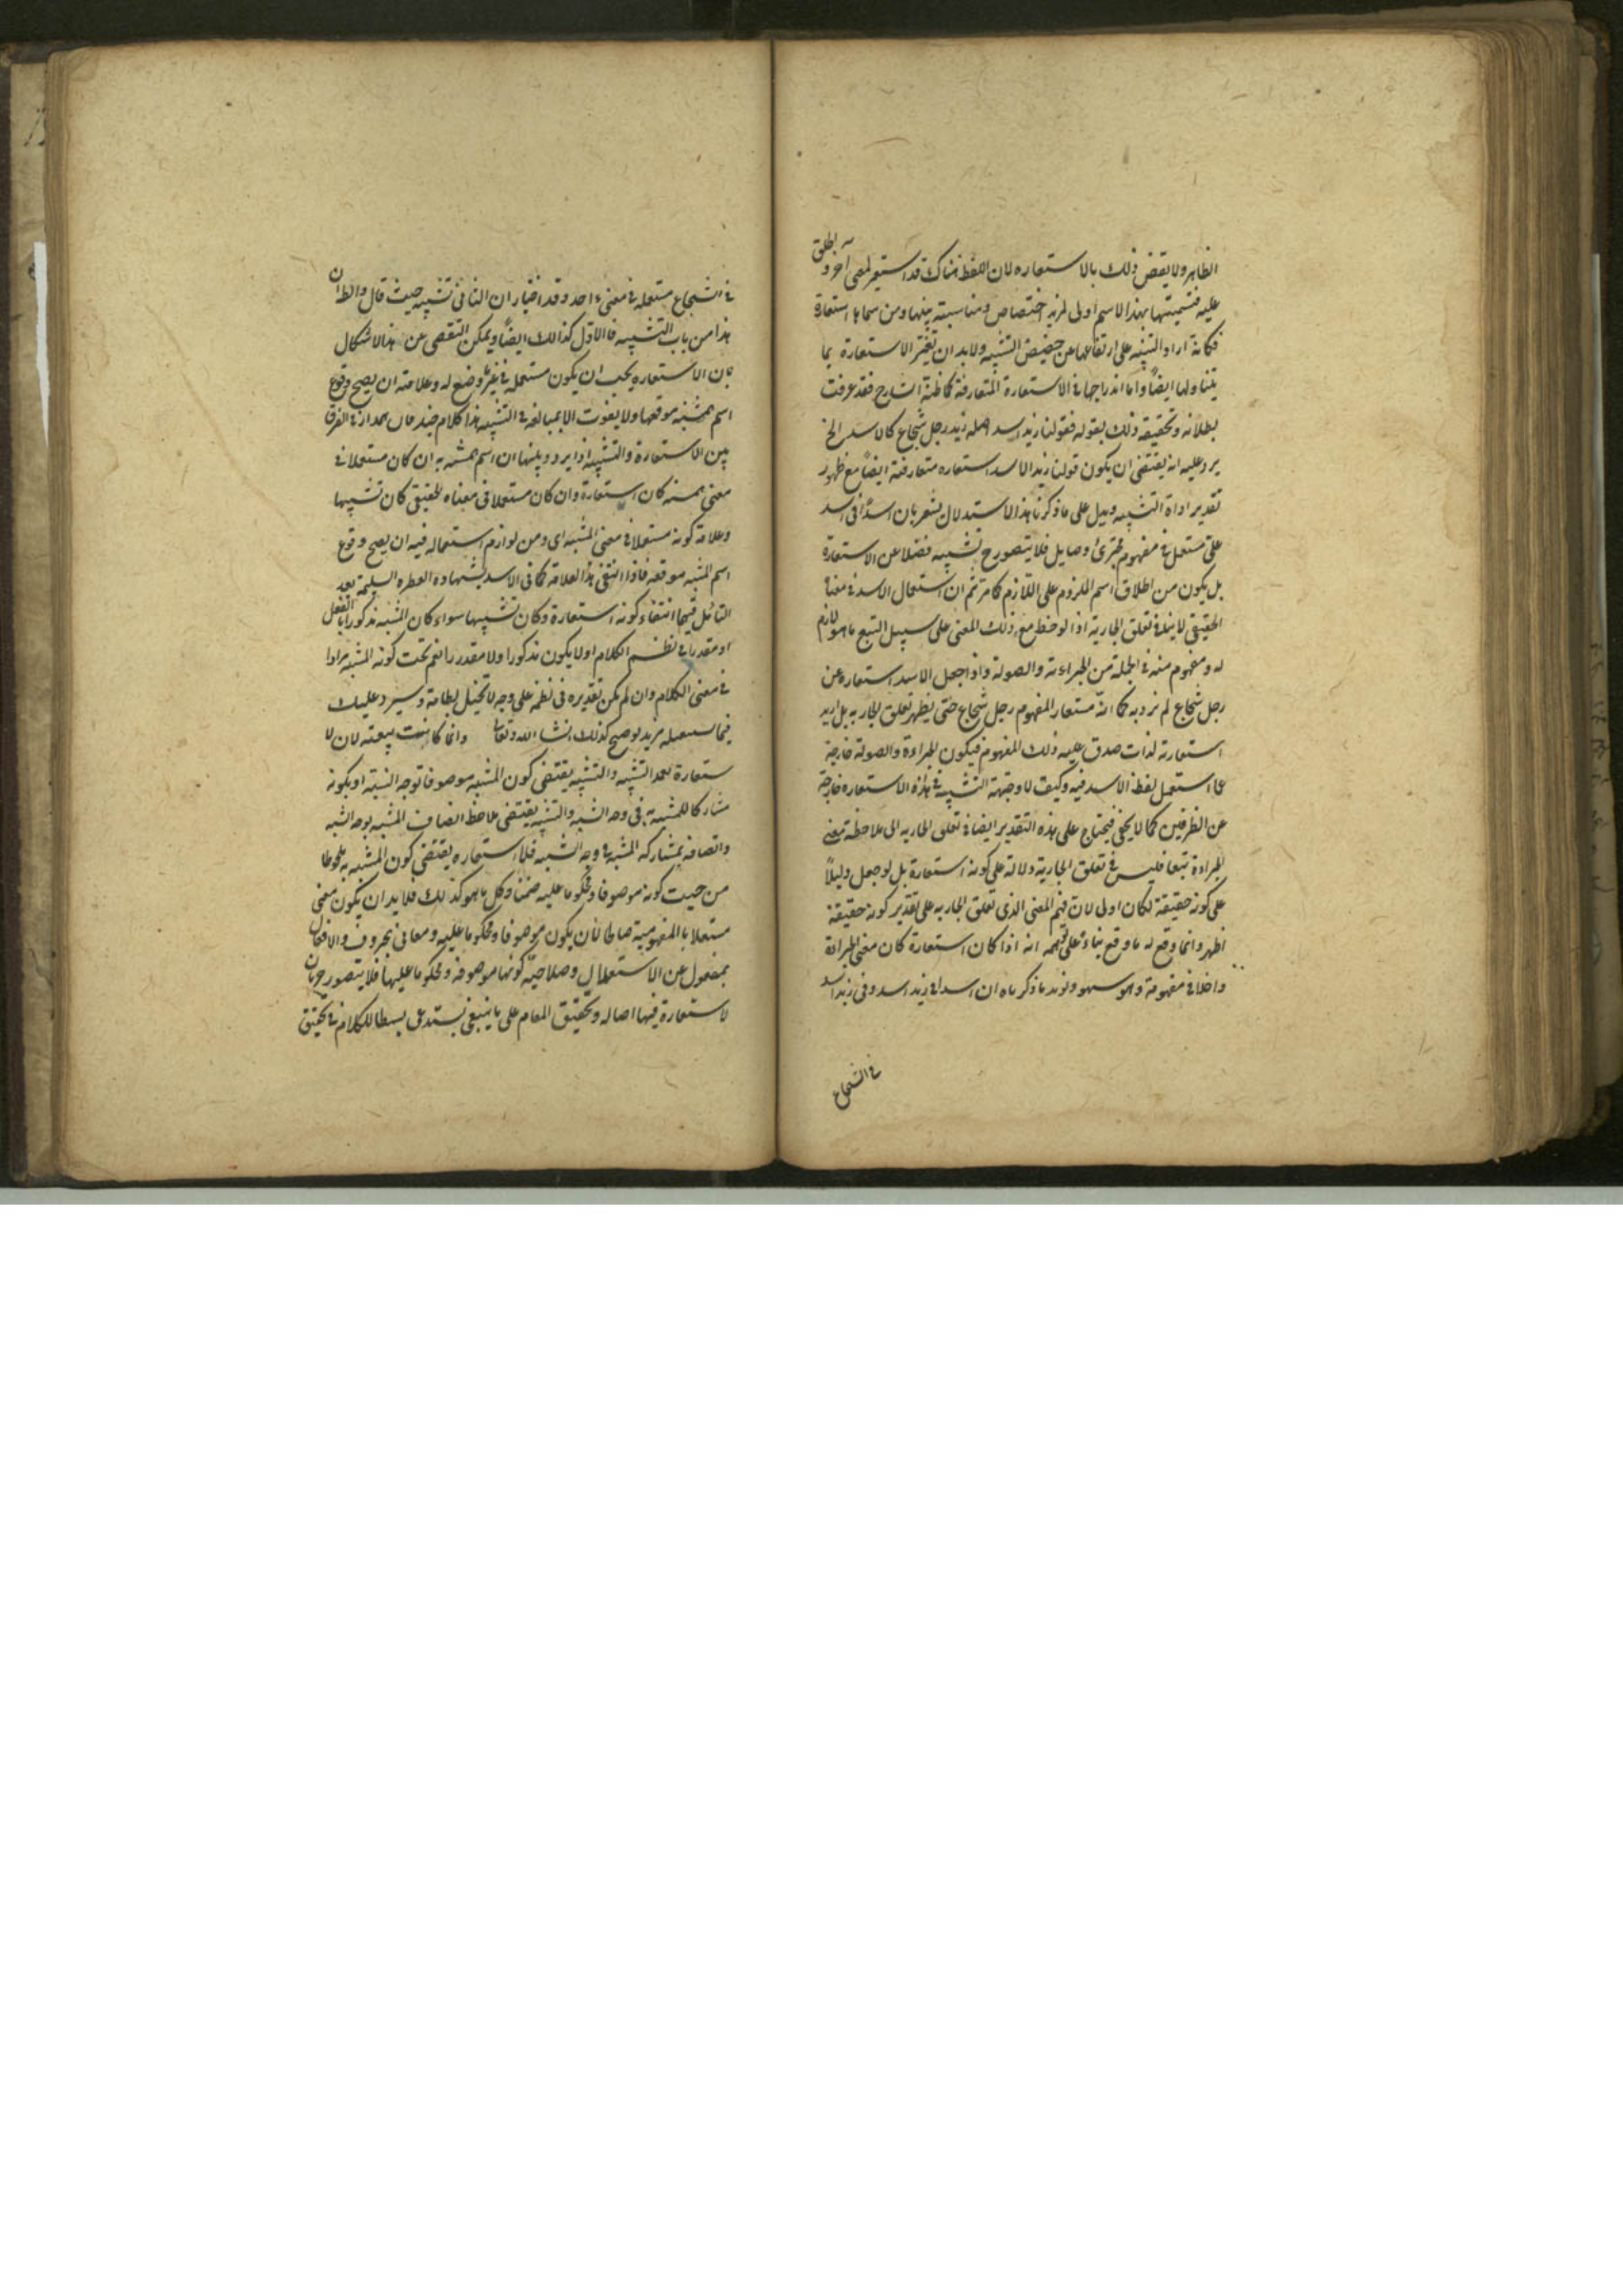 الظاهر ولا ينقض ذلك بالاستعاره لان اللفظ هناك قد استعير لمعنى آخر واطلق
عليه فتسميتها بهذا الاسم اولى لمزيد اختصاص ومناسبته بينها ومن سماها استعارة
فكانه اراد التنبيه على ارتقائها عن حضيض التشبيه ولا بد ان تفسر الاستعارة بما
يتناولها ايضا واما اندراجها فى الاستعارة المتعارفة كما ظنه الشارح فقد عرفت
بطلانه وتحقيقه ذلك بقوله فقولنا زيد اسد اصله زيد رجل شجاع كالاسد الخ
يرد عليه انه يقتضى ان يكون قولنا زيد الاسد استعاره متعارفة ايضا مع ظهور
تقدير اداة التشبيه ويدل على ما ذكرنا هذا الاستدلال مشعر بان اسدا فى اسد
على مستعمل فى مفهوم مجترئ وصايل فلا يتصور ح تشبيه فضلا عن الاستعارة
بل يكون من اطلاق اسم الملزوم على اللازم كما مر ثم ان استعمال الاسد فى معناه
الحقيقى لا ينافى تعلق الجار به اذا لوحظ مع ذلك المعنى على سبيل التبع ما هو لازم
له ومفهوم منه فى الجملة من الجراءة والصولة واذا جعل الاسد استعاره عن
رجل شجاع لم نرد به كما انه مستعار المفهوم رجل شجاع حتى يظهر تعلق الجار به بل اريد
استعارته لذات صدق عليه ذلك المفهوم فيكون الجراءة والصولة خارجة
عما استعمل لفظ الاسد فيه وكيف لا ووجهة التشبيه فى هذه الاستعاره خارجة
عن الطرفين كما لا يخفى فيحتاج على هذه التقدير ايضا فى تعلق الجار به الى ملاحظة معنى
الجراءة تبعا فليس فى تعلق الجار به دلالة على كونه استعارة بل لو جعل دليلا
على كونه حقيقة لكان اولى لان فهم المعنى الذى تعلق الجار به على تقدير كونه حقيقة
اظهر وانما وقع له ما وقع بناء على توهمه انه اذا كان استعارة كان معنى الجراءة
داخلا فى مفهومه وهو سهو ويؤيد ما ذكرناه ان اسدا فى زيد اسد وفى زيد اسد
فى الشجاع
فى الشجاع مستعمله فى معنى واحد وقد اختار ان الثانى تشبيه حيث قال والظ ان
هذا من باب التشبيه فالاول كذالك ايضا ويمكن التفصى عن هذا الاشكال
بان الاستعاره يجب ان يكون مستعمله فى غير ما وضع له وعلامته ان يصح وقوع
اسم المشبه موقعها ولا يفوت الا المبالغة فى التشبيه هذا كلام جيد فان مدار الفرق
بين الاستعارة والتشبيه اذا يردد بينهما ان اسم المشبه به ان كان مستعملا فى
معنى المشبه كان استعارة وان كان مستعملا فى معناه الحقيقى كان تشبيها
وعلامة كونه مستعملا فى معنى المشبه اى ومن لوازم استعماله فيه ان يصح وقوع
اسم المشبه موقعه فاذا انتفى هذا العلامة كما فى الاسد بشهاده الفطره السليمة بعد
التأمل فيها انتفاء كونه استعارة وكان تشبيها سواء كان المشبه مذكورا بالفعل
او مقدرا فى نظم الكلام او لا يكون مذكورا ولا مقدرا نعم تحت كونه المشبه مرادا
فى معنى الكلام وان لم يمكن تقديره فى نظمه على وجه لا تخيل نظامه وسيرد عليك
فيما سيفصله مزيد توضيح لذلك انشا الله تعالى وانما كانت تبعية لان الا
ستعارة تعمد التشبيه والتشبيه يقتضى كون المشبه موصوفا بوجه الشبه او بكونه
مشاركا للمشبه به فى وجه الشبه والتشبيه يقتضى ملاحظة اتصاف المشبه بوجه الشبه
واتصافه بمشاركة المشبه به فى وجه الشبه فلا استعاره يقتضى كون المشبه به ملحوظا
من حيث كونه موصوفا ومحكوما عليه ضمنا وكل ما هو كذلك فلا بد ان يكون معنى
مستقلا بالمفهومية صالحا لان يكون موصوفا ومحكوما عليه ومعانى الحروف والافعال
بمعزول عن الاستقلال وصلاحية كونها موصوفة ومحكوما عليها فلا يتصور جريان
لاستعارة فيها اصاله وتحقيق المقام على ما ينبغى يستدعى بسطا للكلام فى تحقيق